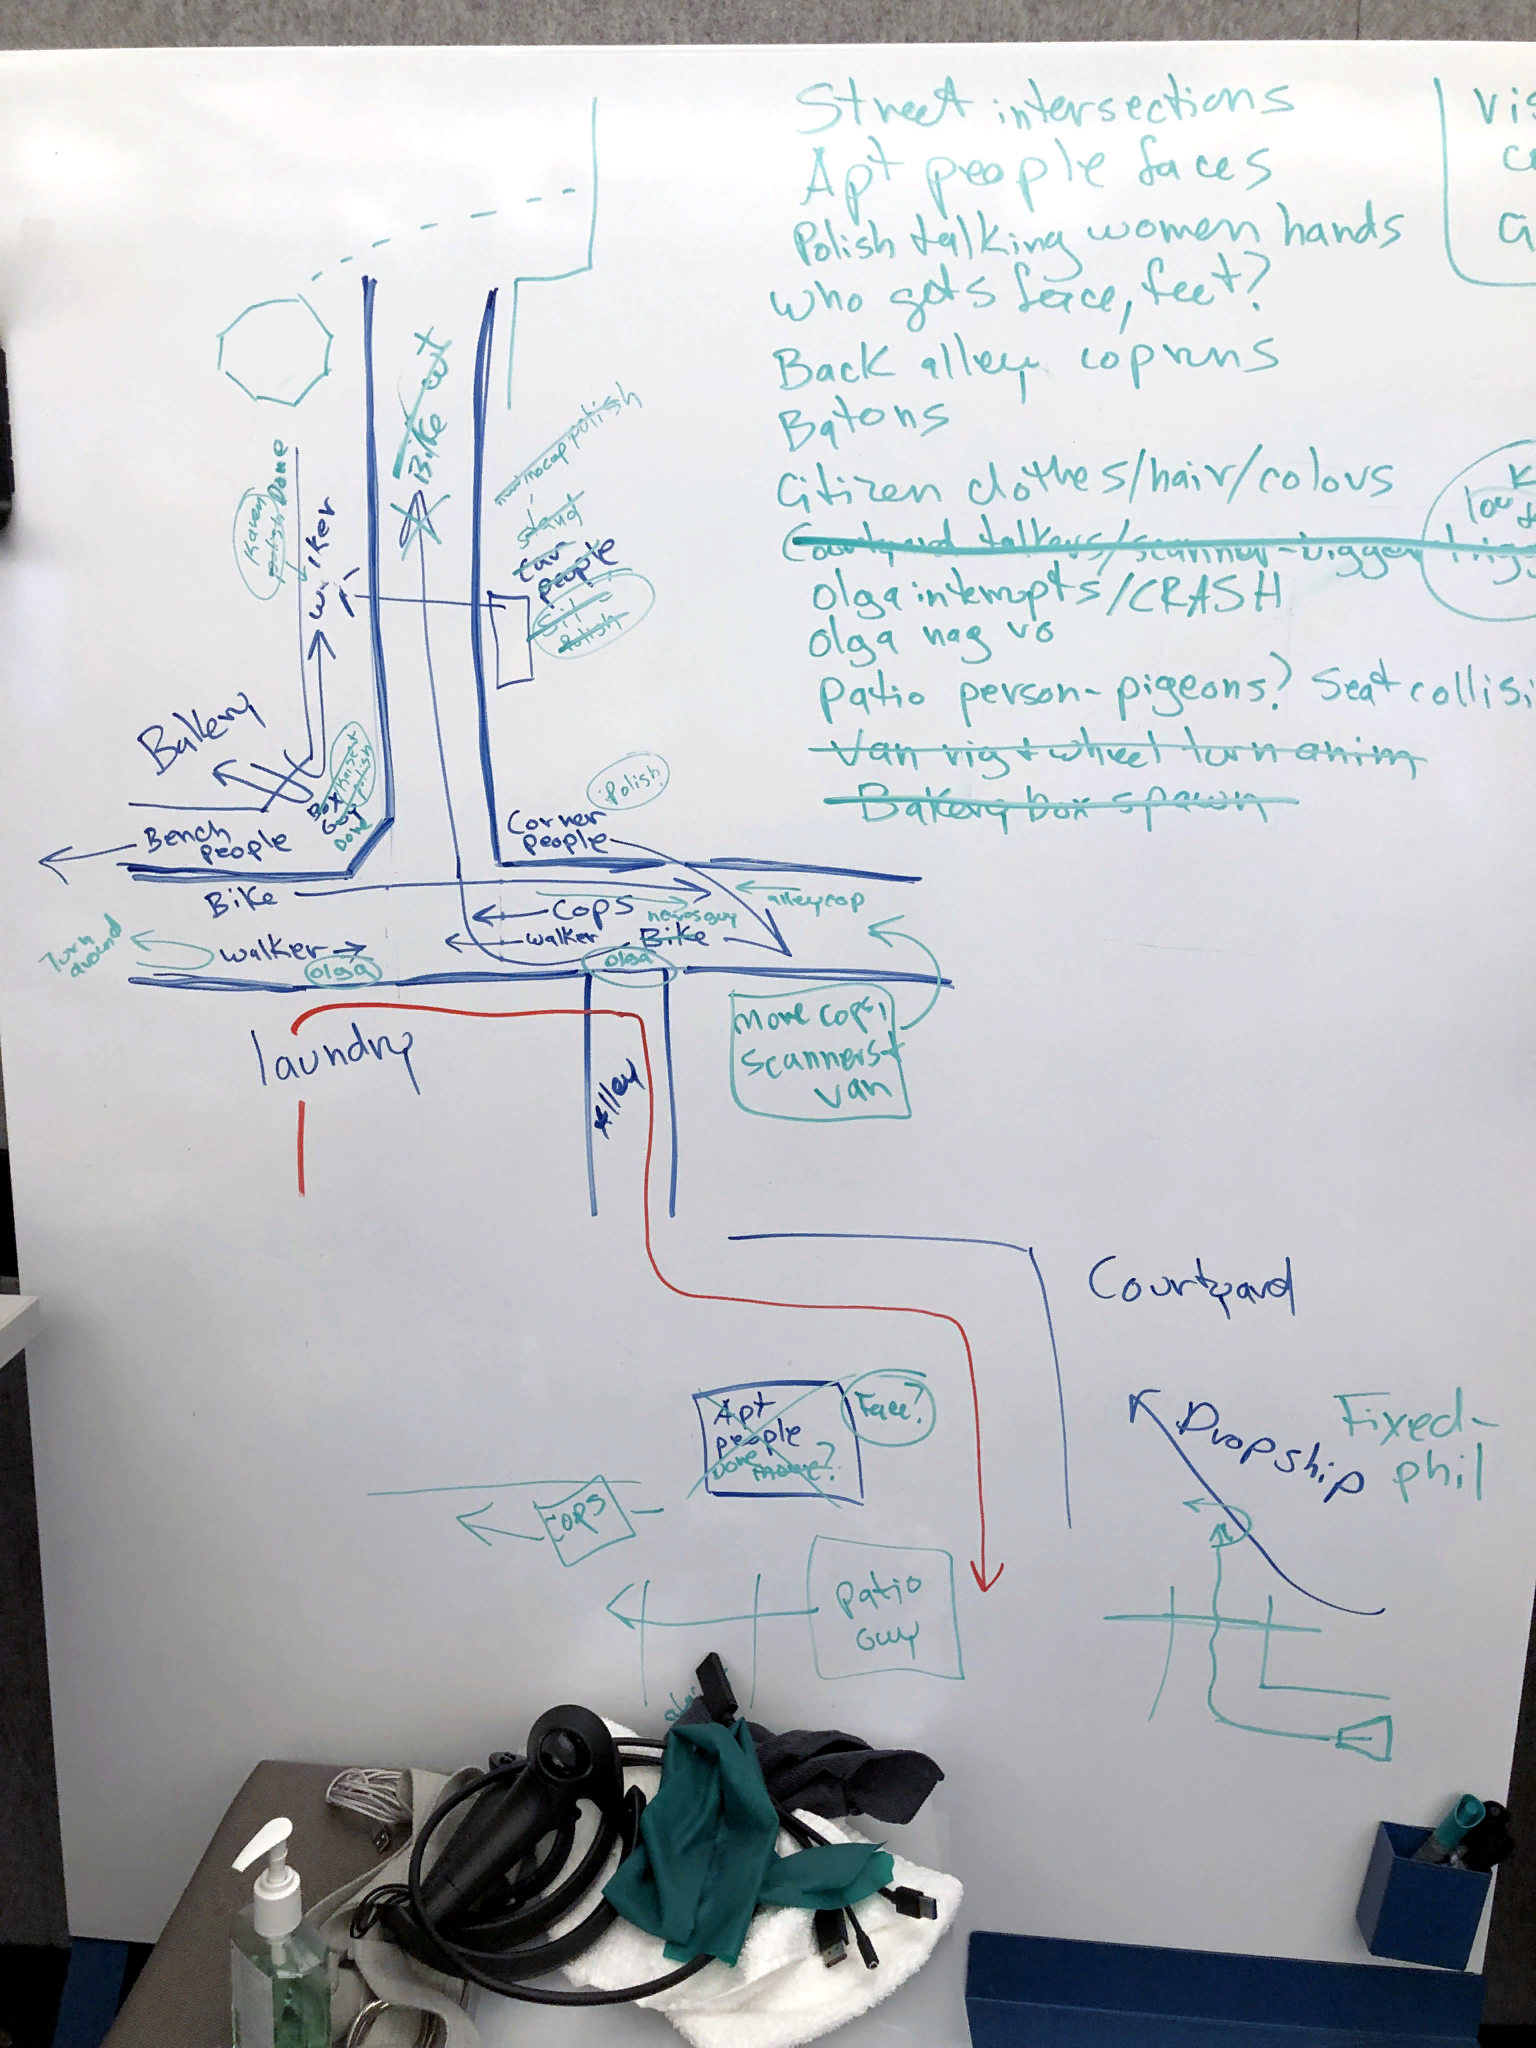 Street intersections
Apt people faces
Polish talking women hands
Who gets face, feet?
Back alley cop runs
Batons
Citizen clothes/hair/colours
Courtyard talkers/scanner-bigger trig
Olga interrupts/CRASH
Olga nag vo
Patio person-pigeons? Seat collisi
Van right wheel turn anim
Bakery box spawn
Vis
Bike out
new mocap polish
stand
Car
people
sit
polish
Karen
polish Done
walker
Bakery
Box
Guy
Done
polish
Polish
Corner
people
Bench
people
Bike
Cops
news guy
alley cop
Turn
around
walker
walker
Bike
olga
olga
More cops,
scanners+
van
laundry
Alley
Courtyard
Apt
people
Done
Face?
Dropship
Fixed-
phil
Cops
Patio
Guy